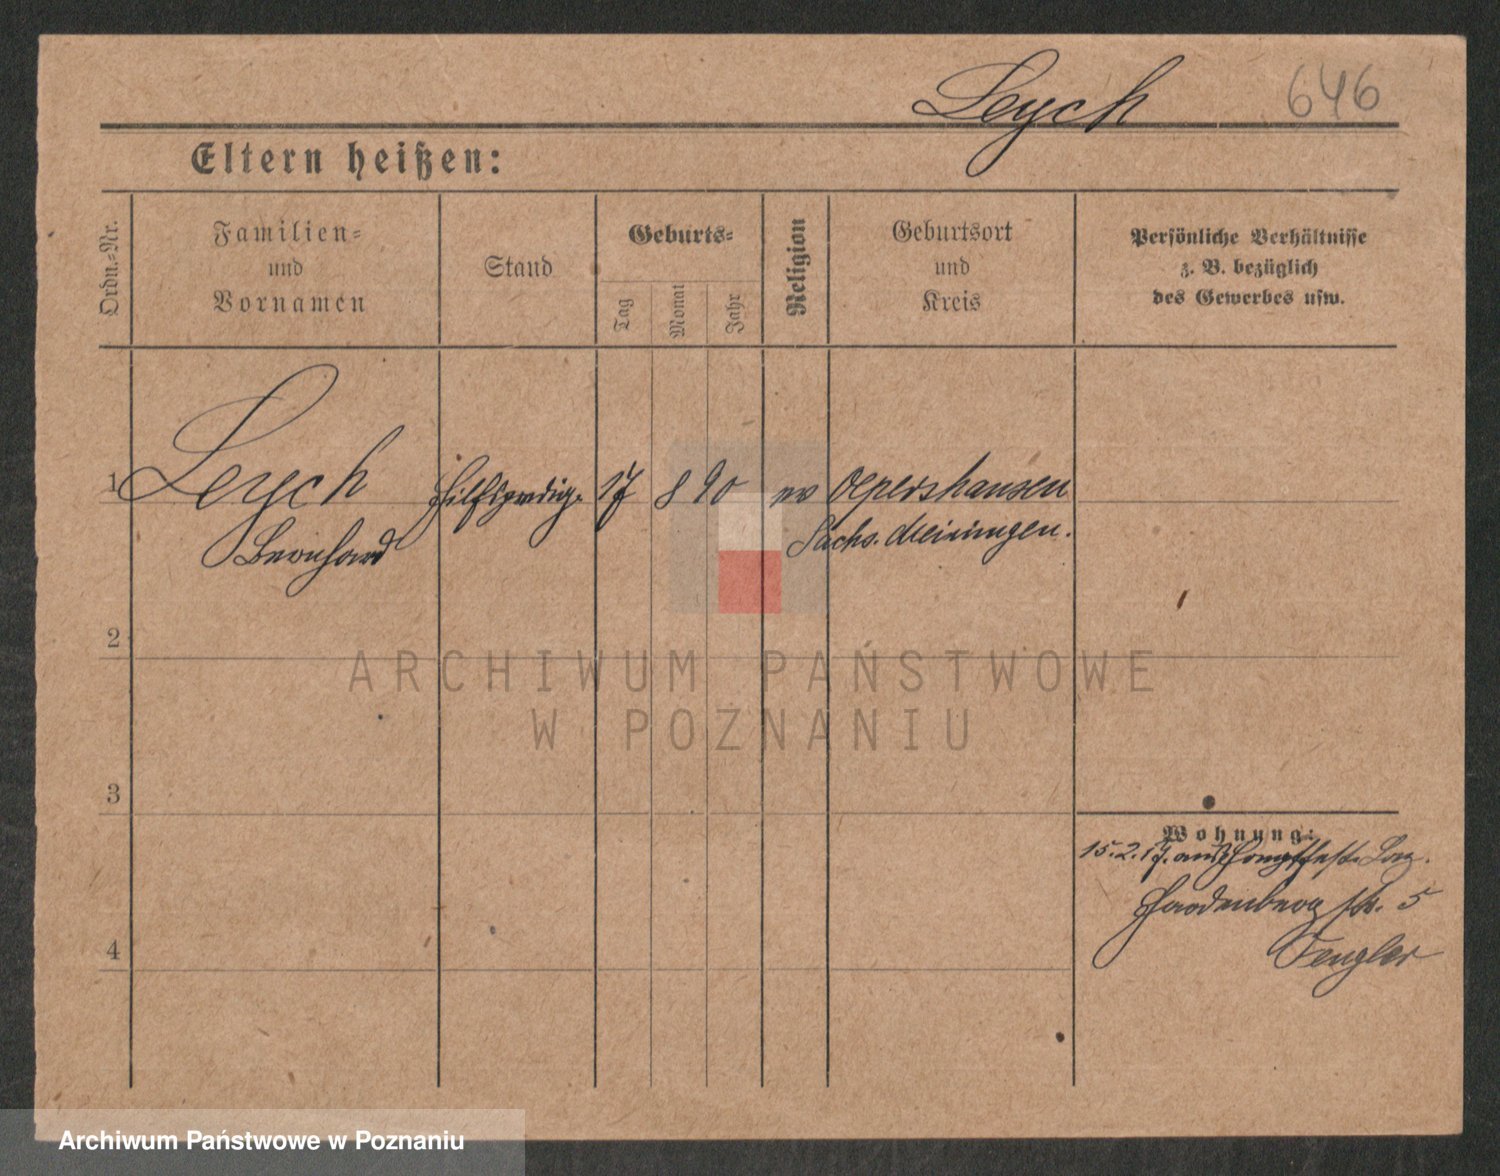 Leych 646
Eltern heißen:
Ordn.-Nr.
Familien-
und
Vornamen
Stand
Geburts-
Tag
Monat
Jahr
Religion
Geburtsort
und
Kreis
Persönliche Verhältnisse
z. B. bezüglich
des Gewerbes usw.
1 Leych Hilfspredig. 17 8 90 ev Oepershausen
Bernhard Sachs. Meiningen.
2
ARCHIWUM PAŃSTWOWE
W POZNANIU
3
Wohnung:
15.2.17. aus
Hardenberg str. 5
Fengler
4
Archiwum Państwowe w Poznaniu